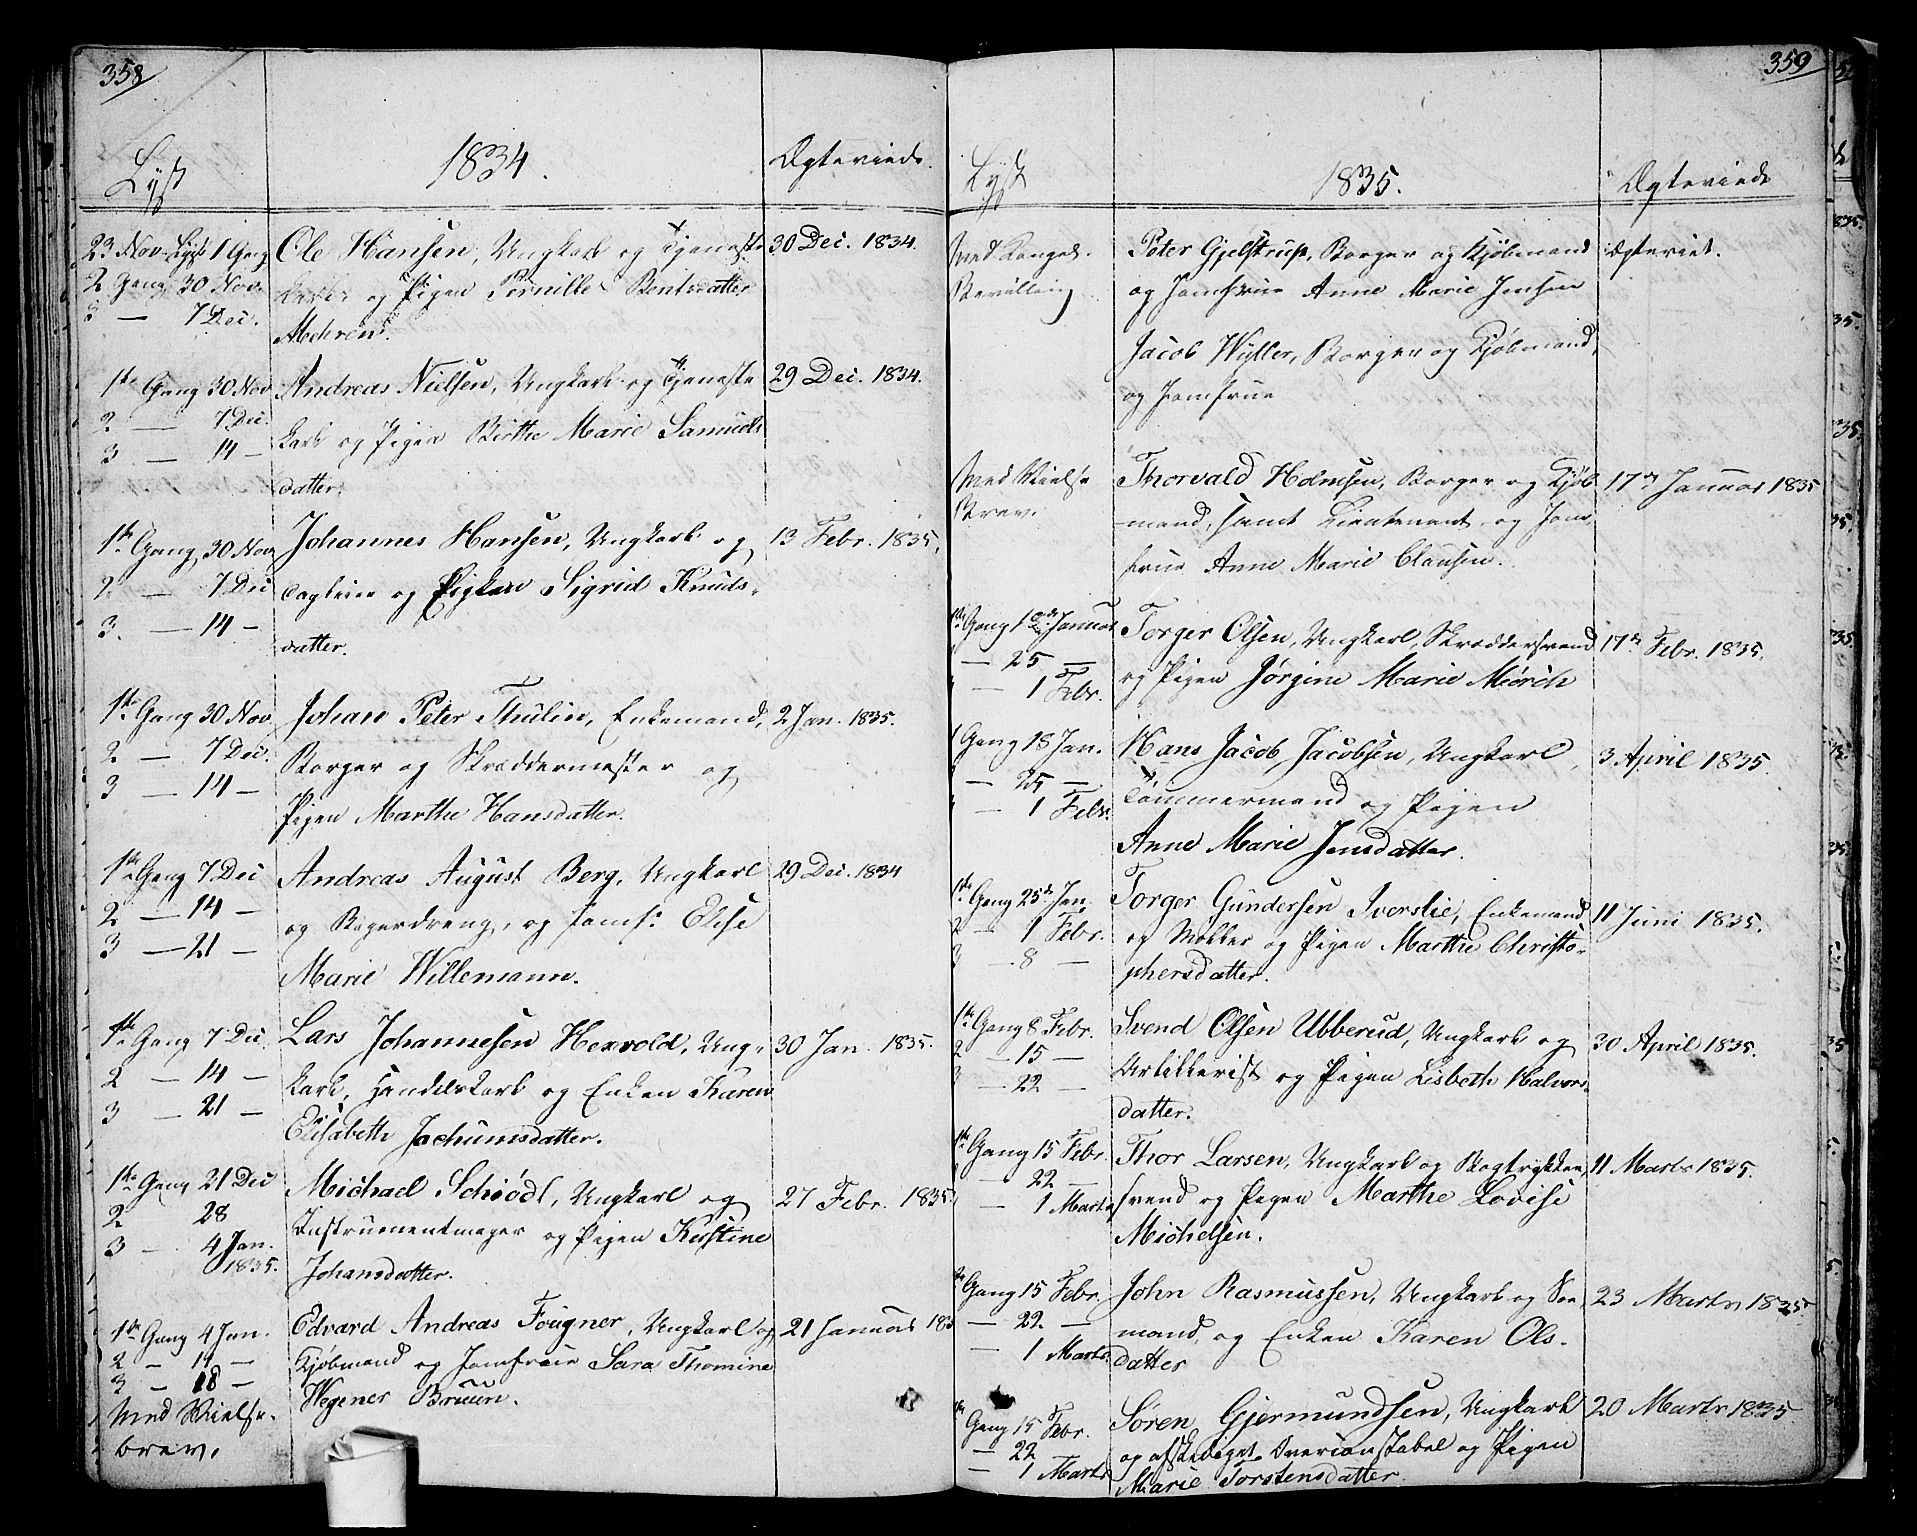 358
Lyst
1834.
Ægteviede.
23 Nov. Lyst 1 Gang
2 Gang 30 Nov.
3 — 7 Dec.
Ole Hansen, Ungkarl og Tjeneste
karl og Pigen Pernille Bentsdatter
Mehren.
30 Dec. 1834.
1ste Gang 30 Nov
2 — 7 Dec.
3 — 14 —
Andreas Nielsen, Ungkarl og Tjeneste
karl og Pigen Birthe Marie Samuels
datter.
29 Dec. 1834.
1ste Gang 30 Nov
2 — 7 Dec
3. — 14 —
Johannes Hansen, Ungkarl og
Dagleier og Pigen Sigrid Knuds-
datter.
13 Febr. 1835.
1ste Gang 30 Nov.
2 — 7 Dec.
3 — 14 —
Johan Peter Thulin, Enkemand,
Borger og Skræddermester og
Pigen Marthe Hansdatter.
2 Jan. 1835.
1ste Gang 7 Dec
2 — 14 —
3 — 21 —
Andreas August Berg, Ungkarl
og Bagerdreng, og Jomf: Elise
Marie Willemann.
29 Dec. 1834
1ste Gang 7 Dec
2 — 14 —
3 — 21 —
Lars Johannesen Hexvold, Ung-
karl, Handelskarl og Enken Karen
Elisabeth Jochumsdatter.
30 Jan. 1835.
1ste Gang 21 Dec
2 28
3 — 4 Jan.
1835.
Michael Schiødt, Ungkarl og
Instrumentmager og Pigen Kirstine
Johansdatter.
27 Febr. 1835
1ste Gang 4 Jan.
2 — 11 —
3 — 18 —
Med Vielse-
brev.
Edvard Andreas Fougner, Ungkarl og
Kjøbmand og Jomfrue Sara Thomine
Wegener Bruun.
21 Januar 183
359
Lyst
1835.
Ægteviede
Med Kongel.
Bevilling
Peter Gjelstrup, Borger og Kjøbmand
og Jomfrue Anne Marie Jensen
Ægteviet.
Jacob Wyller, Borger og Kjøbmand,
og Jomfrue
Med Vielse
Brev.
Thorvald Holmsen, Borger og Kjøb
mand, samt Lieutenant og Jom-
frue Anne Marie Clausen.
17de Januar 1835
1ste Gang Januar
— 25 —
— 1 Febr.
Torger Olsen, Ungkarl, Skræddersvend
og Pigen Jørgine Marie Mörch
17de Febr. 1835.
1 Gang 18 Jan.
— 25 —
— 1 Febr.
Hans Jacob Jacobsen, Ungkarl
Tømmermand og Pigen
Anne Marie Jensdatter.
3 April 1835.
1ste Gang 25de Jan.
2 — 1 Febr.
3 — 8 —
Torger Gundersen Iverslie, Enkemand
og Møller og Pigen Marthe Christo-
phersdatter.
11 Juni 1835.
1ste Gang 8 Febr.
2 — 15 —
3 — 22 —
Svend Olsen Ubberud, Ungkarl og
Artillerist og Pigen Lisbeth Halvors-
datter.
30 April 1835.
1ste Gang 15 Febr
— 22 —
— 1 Marts
Thor Larsen, Ungkarl og Bogtrykker-
svend og Pigen Marthe Lovise
Michelsen.
11 Marts 1835.
Gang 15 Febr.
— 22. —
— 1 Marts
John Rasmussen, Ungkarl og Søe-
mand, og Enken Karen Ols-
datter
23 Marts 1835
Gang 15 Febr.
— 22
— 1 Marts
Søren Gjermundsen, Ungkarl
og afskediget Overconstabel og Pigen
Marie Torstensdatter.
20 Marts 1835